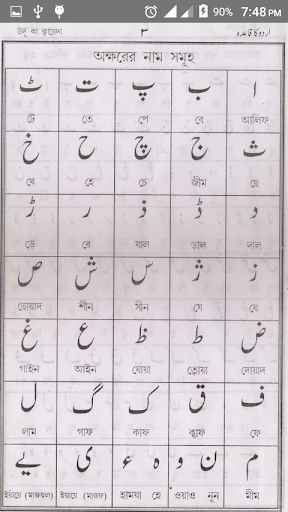 90% 7:48 PM
উর্দু কা ক্বায়েদা ৩ اردو کا قاعدہ
অক্ষরের নাম সমূহ
ا ب پ ت ٹ
টে তে পে বে আলিফ
ث ج چ ح خ
খে হে চে জীম ছে
د ڈ ذ ر ڑ
ড়ে রে যাল ডাল দাল
ز ژ س ش ص
ছোয়াদ শীন সীন সে যে
ض ط ظ ع غ
গাইন আইন যোয়া ত্বোয়া দোয়াদ
ف ق ک گ ل
লাম গাফ কাফ ক্বাফ ফে
م ن و ہ ء ی یے
ইয়ায়ে (মাজহুল) ইয়ায়ে (মারূফ) হামযা হে ওয়াও নূন মীম